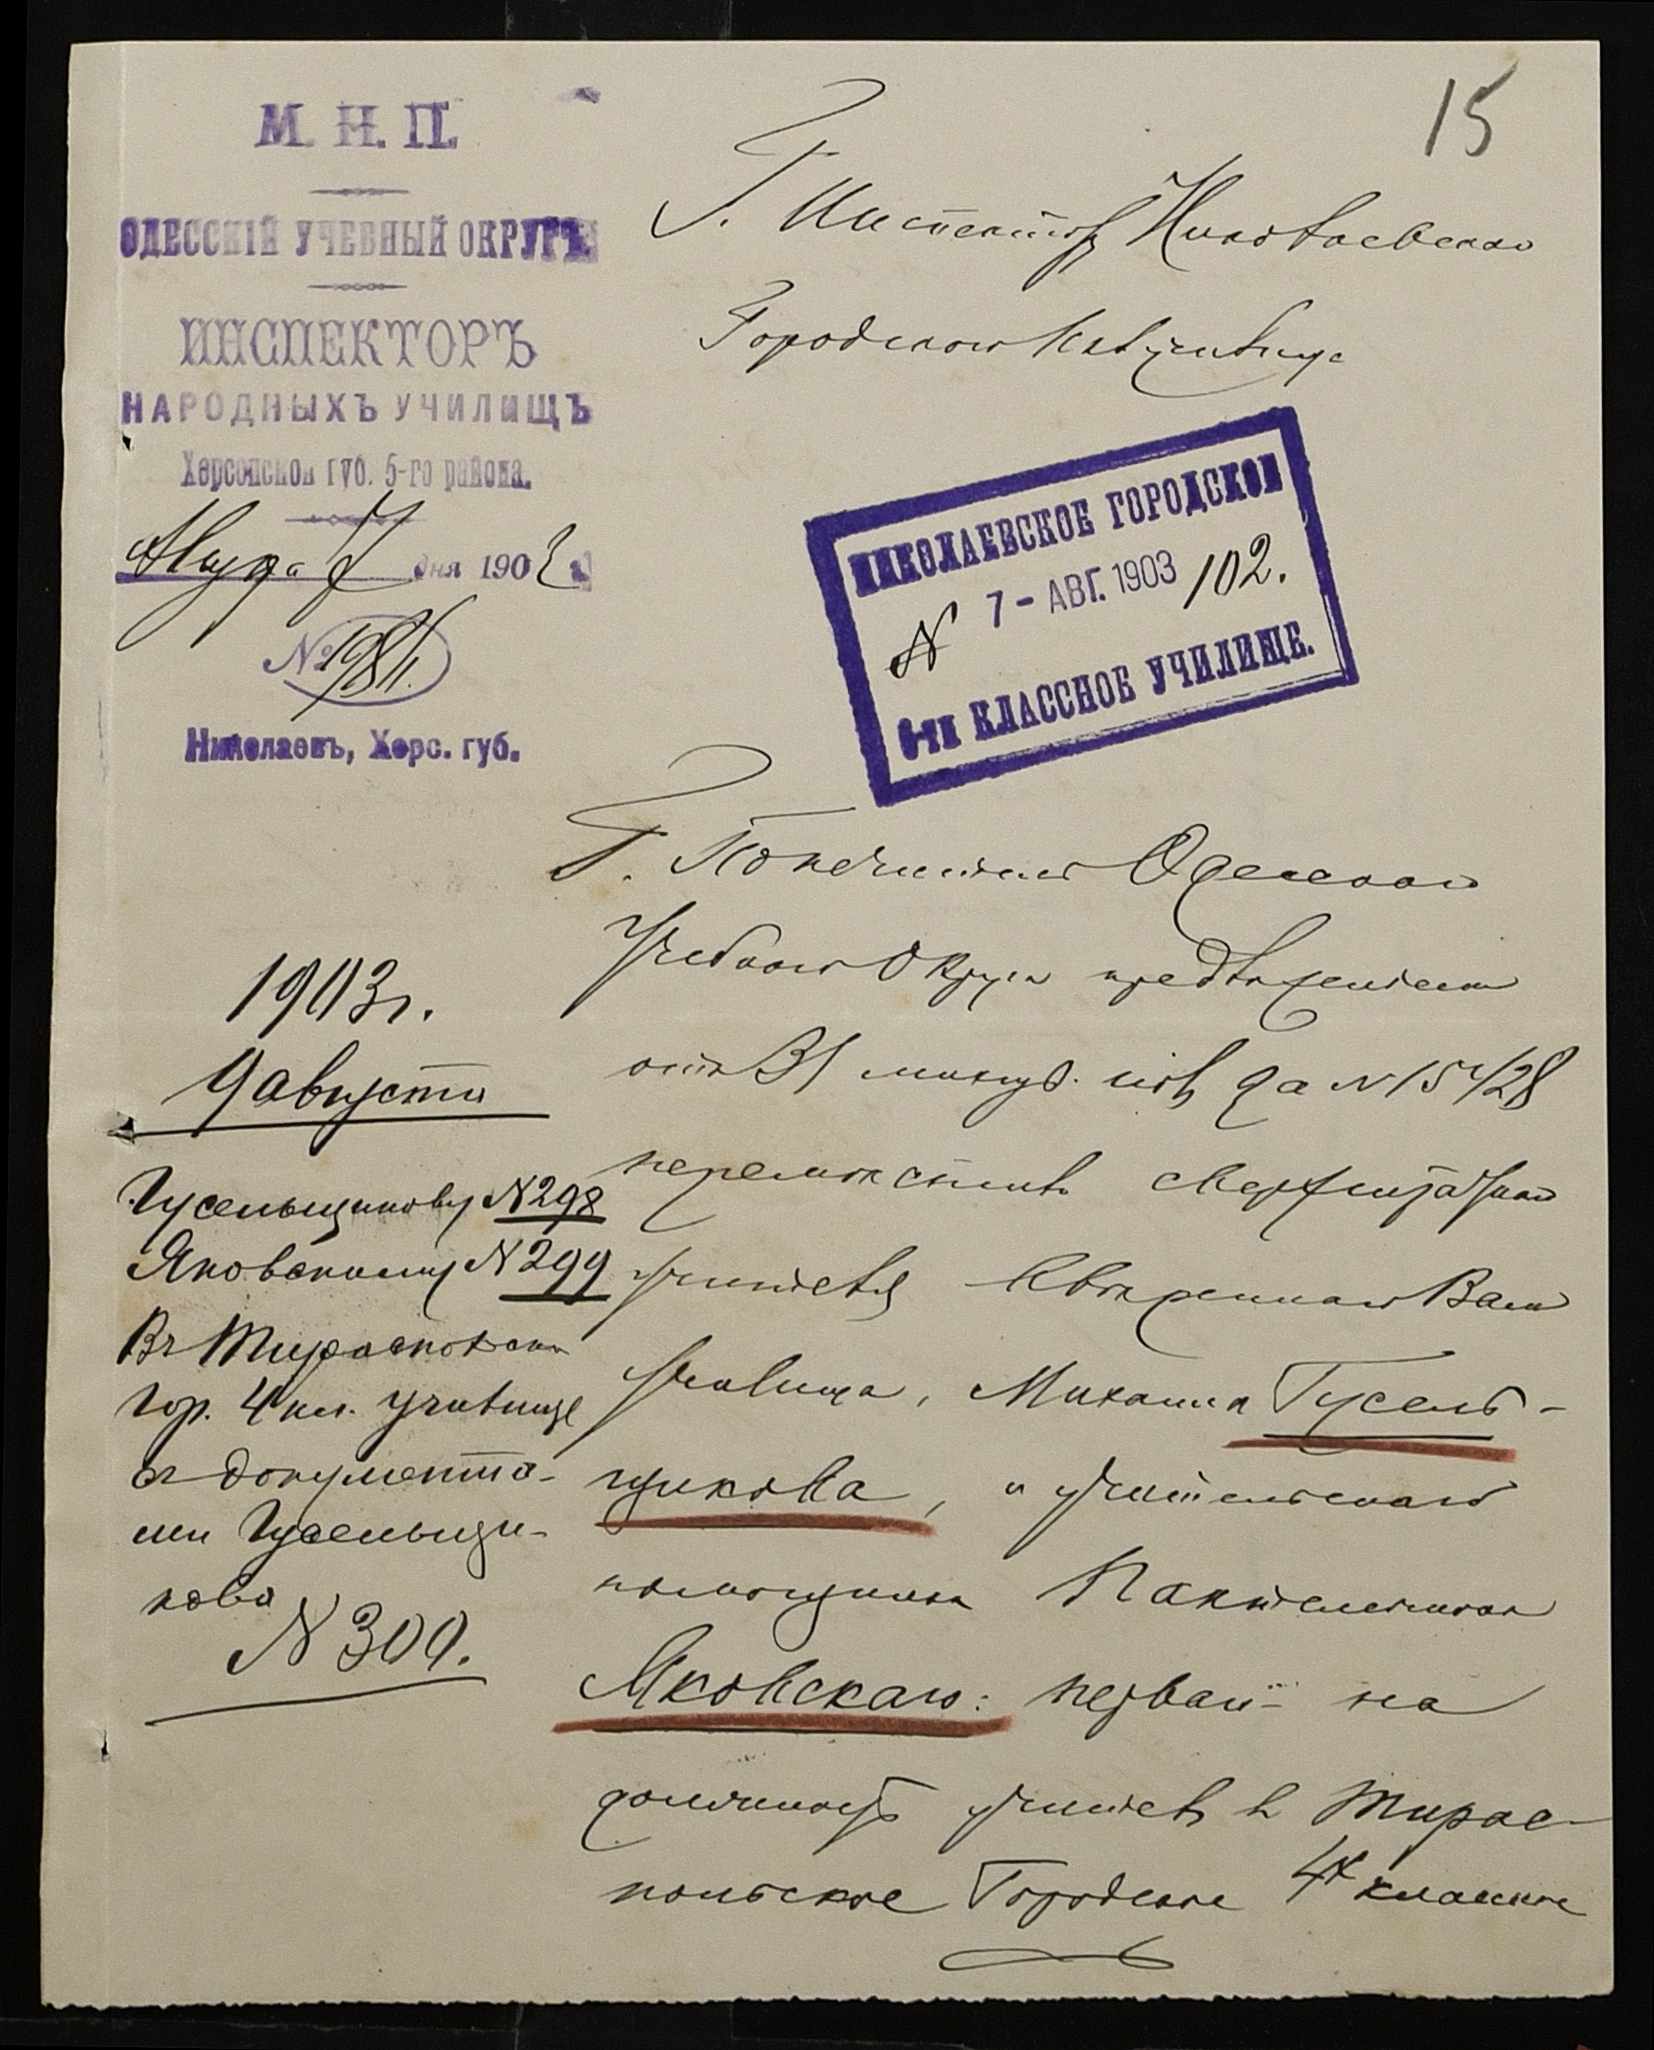 15
М. Н. П.
ОДЕССКІЙ УЧЕБНЫЙ ОКРУГЪ.
ИНСПЕКТОРЪ
НАРОДНЫХЪ УЧИЛИЩЪ
Херсонской губ. 5-го района.
7 дня 1903 г.
№ 1981.
Николаевъ, Херс. губ.
Г. Инспектору Николаевскаго
Городского училища
НИКОЛАЕВСКОЕ ГОРОДСКОЕ
N 7 - АВГ. 1903 102.
6-ти КЛАССНОЕ УЧИЛИЩЕ.
Г. Попечитель Одесскаго
Учебнаго Округа предложеніемъ
отъ 31 минув. іюля за N
перемѣстилъ сверхштатнаго
учителя ввѣреннаго Вамъ
училища, Михаила Гусель-
щикова, и учительскаго
помощника Пантелеимона
Яковскаго: первый на
должность учителя въ Тирас-
польское Городское 4х классное
1903 г.
9 августа
Гусельщикову N 298
Яковскому N 299
Въ Тираспольское
Гор. 4 кл. училище
съ документа-
ми Гусельщи-
кова
N 300.